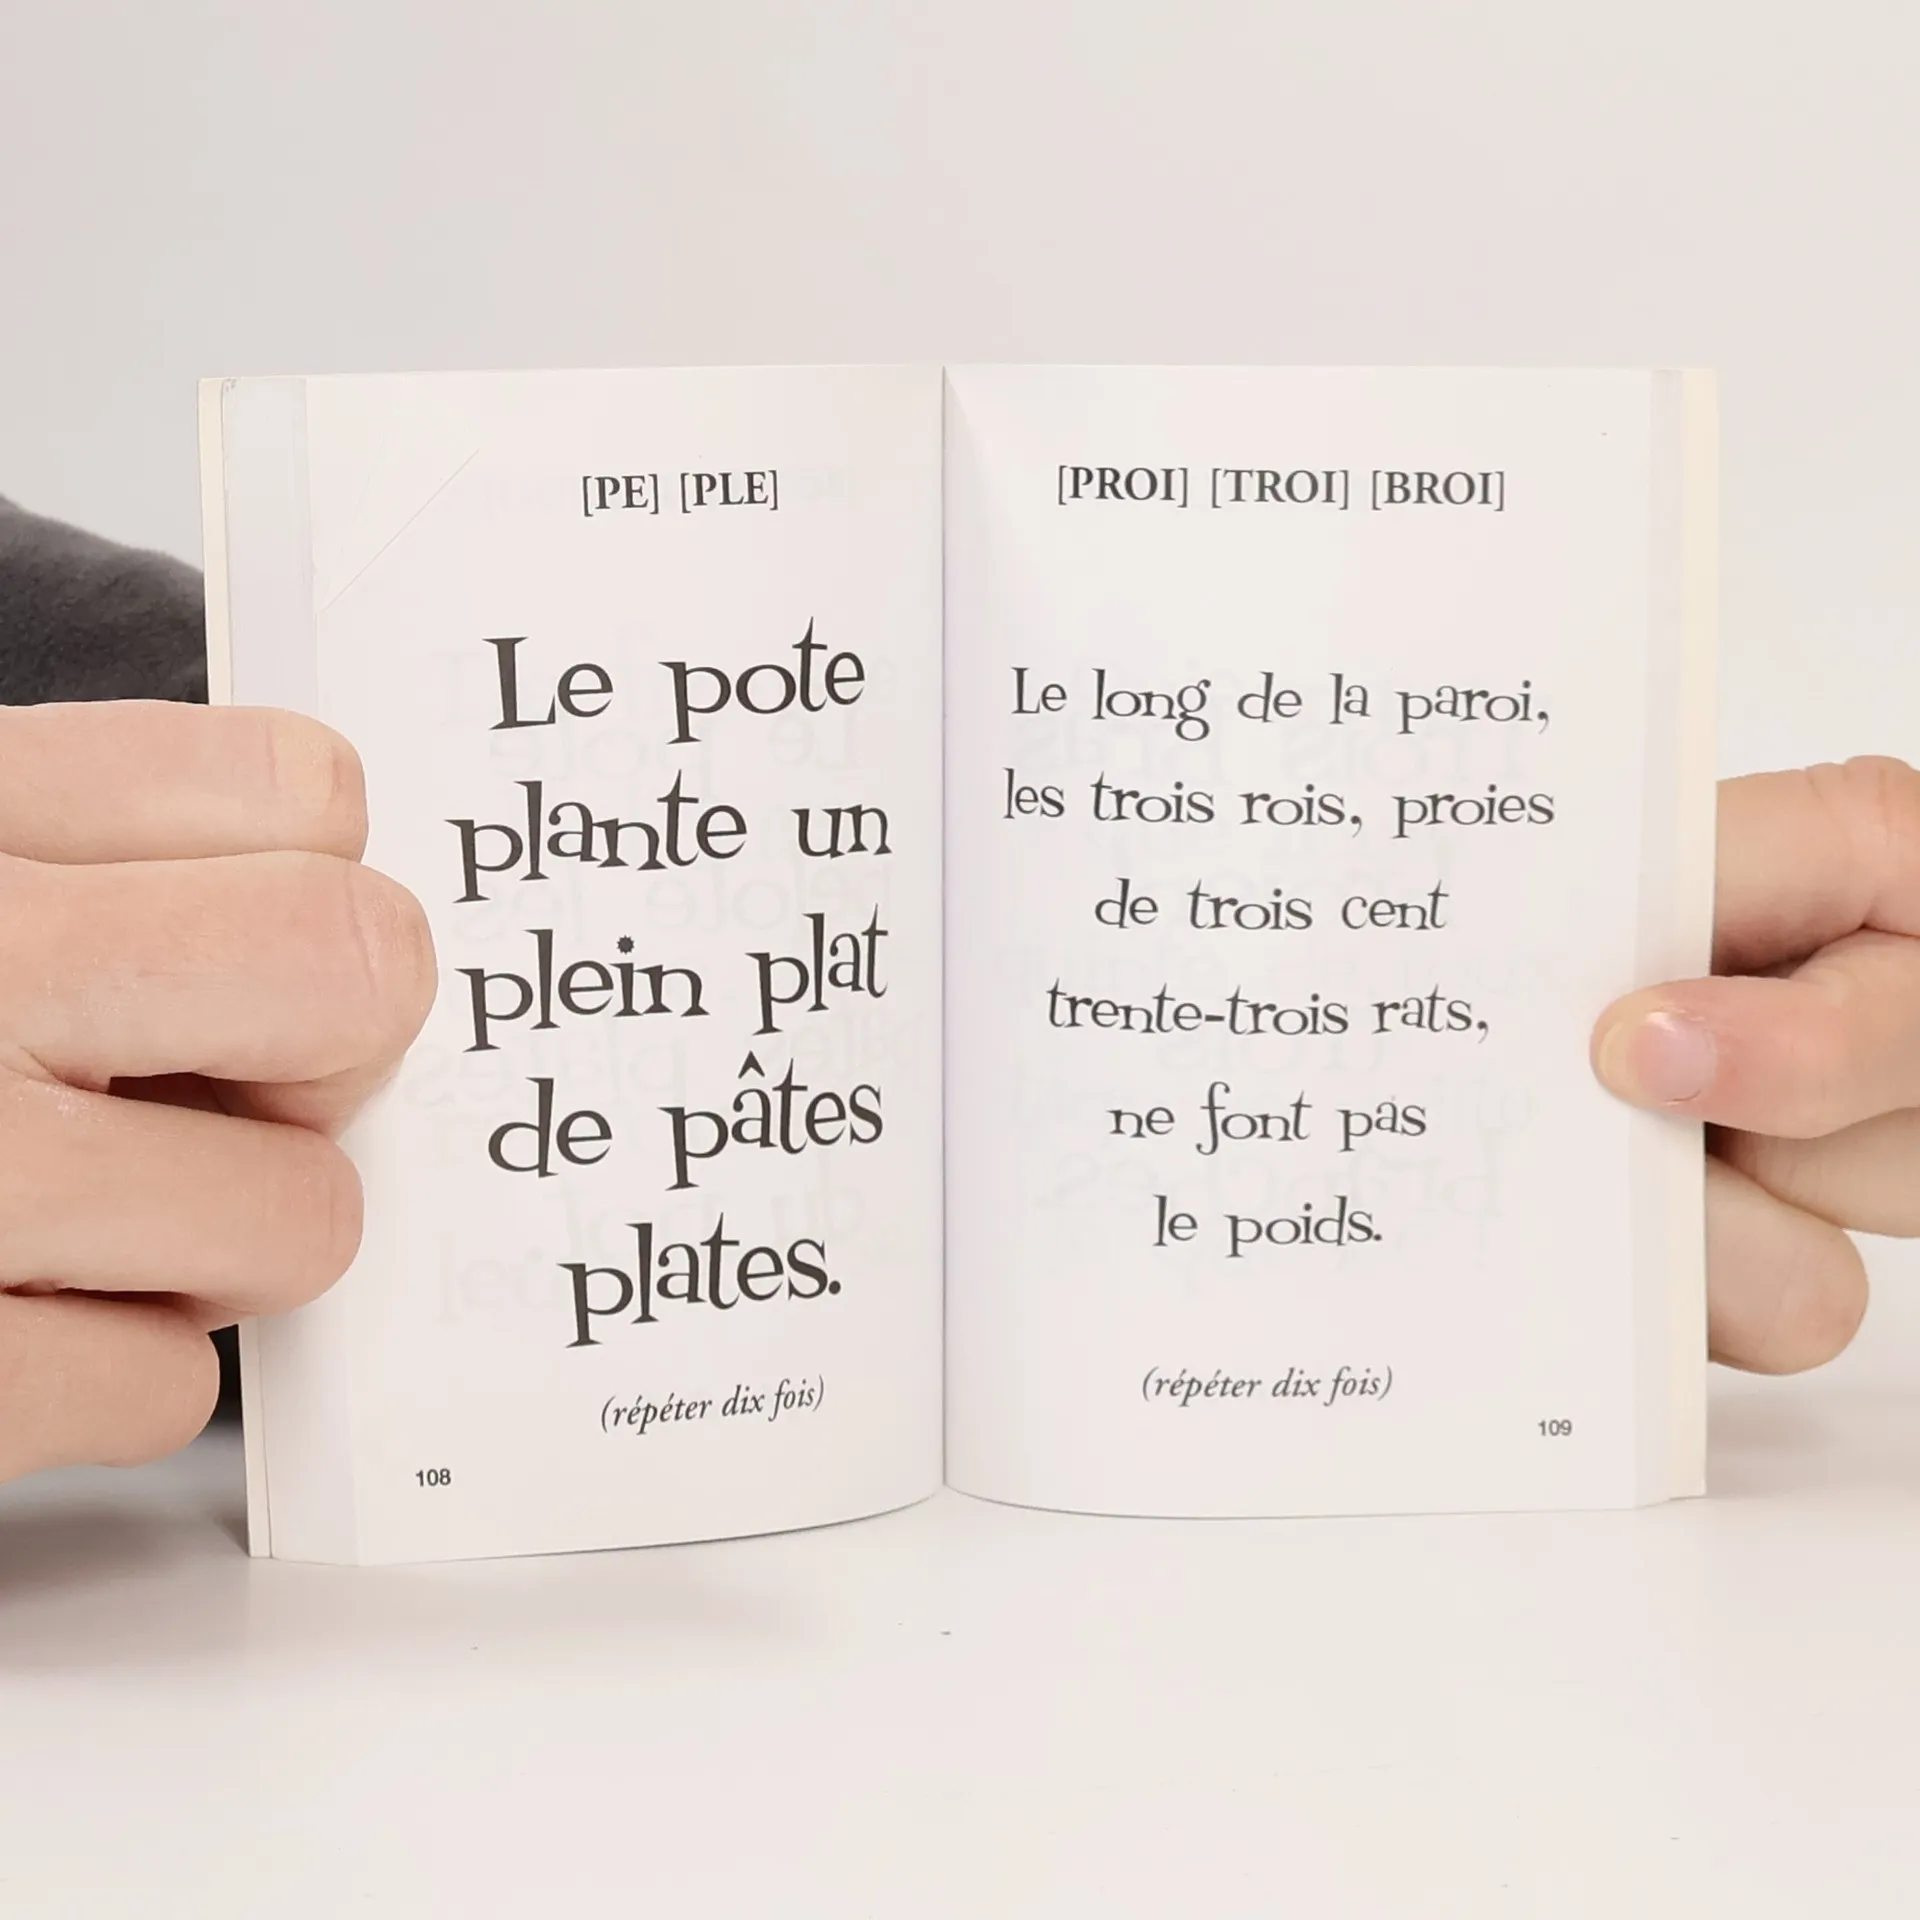 [PE] [PLE]
Le pote
plante un
plein plat
de pâtes
plates.
(répéter dix fois)
108
[PROI] [TROI] [BROI]
Le long de la paroi,
les trois rois, proies
de trois cent
trente-trois rats,
ne font pas
le poids.
(répéter dix fois)
109